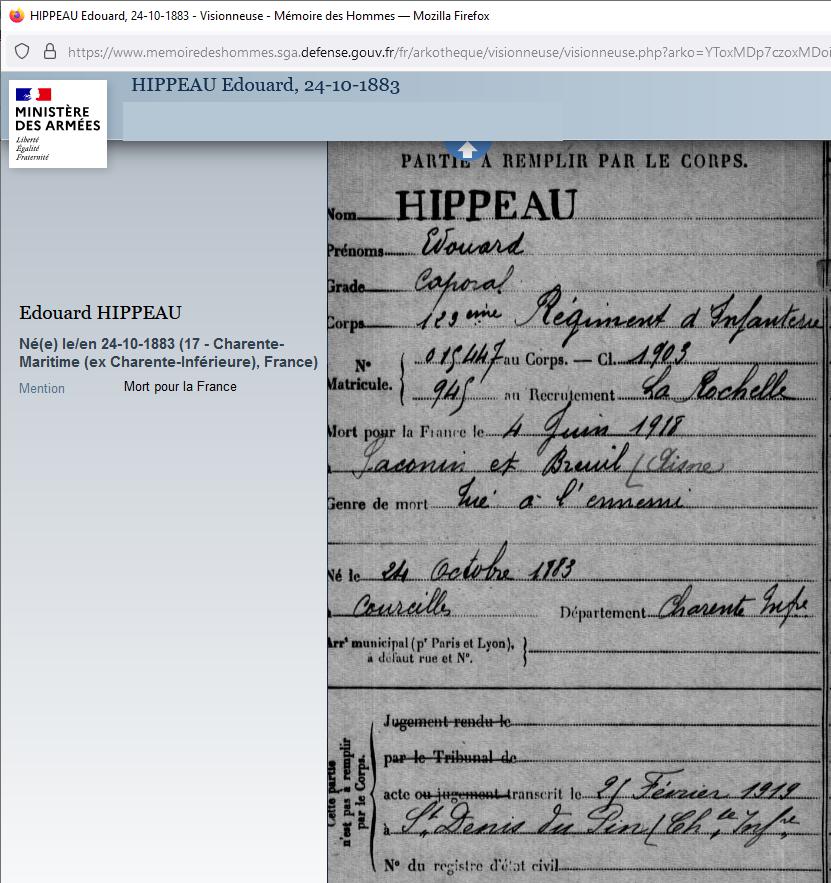 HIPPEAU Edouard, 24-10-1883 - Visionneuse - Mémoire des Hommes — Mozilla Firefox
https://www.memoiredeshommes.sga.defense.gouv.fr/fr/arkotheque/visionneuse/visionneuse.php?arko=YToxMDp7czoxMDoi
HIPPEAU Edouard, 24-10-1883
MINISTÈRE
DES ARMÉES
Liberté
Égalité
Fraternité
Edouard HIPPEAU
Né(e) le/en 24-10-1883 (17 - Charente-
Maritime (ex Charente-Inférieure), France)
Mention Mort pour la France
PARTIE A REMPLIR PAR LE CORPS.
Nom HIPPEAU
Prénoms Edouard
Grade Caporal
Corps 123eme Régiment d'Infanterie
Nº Matricule. { 015447 au Corps. — Cl. 1903
945 au Recrutement La Rochelle
Mort pour la France le 4 Juin 1918
à Laconin et Breuil (Aisne
Genre de mort Tué à l'ennemi
Né le 24 Octobre 1883
à Courcelles Département Charente Infre
Arrt municipal (pr Paris et Lyon),
à défaut rue et Nº.
Cette partie
n'est pas à remplir
par le Corps.
Jugement rendu le
par le Tribunal de
acte ou jugement transcrit le Février 1919
à St Denis du Pin (Ch.te Infre
Nº du registre d'état civil